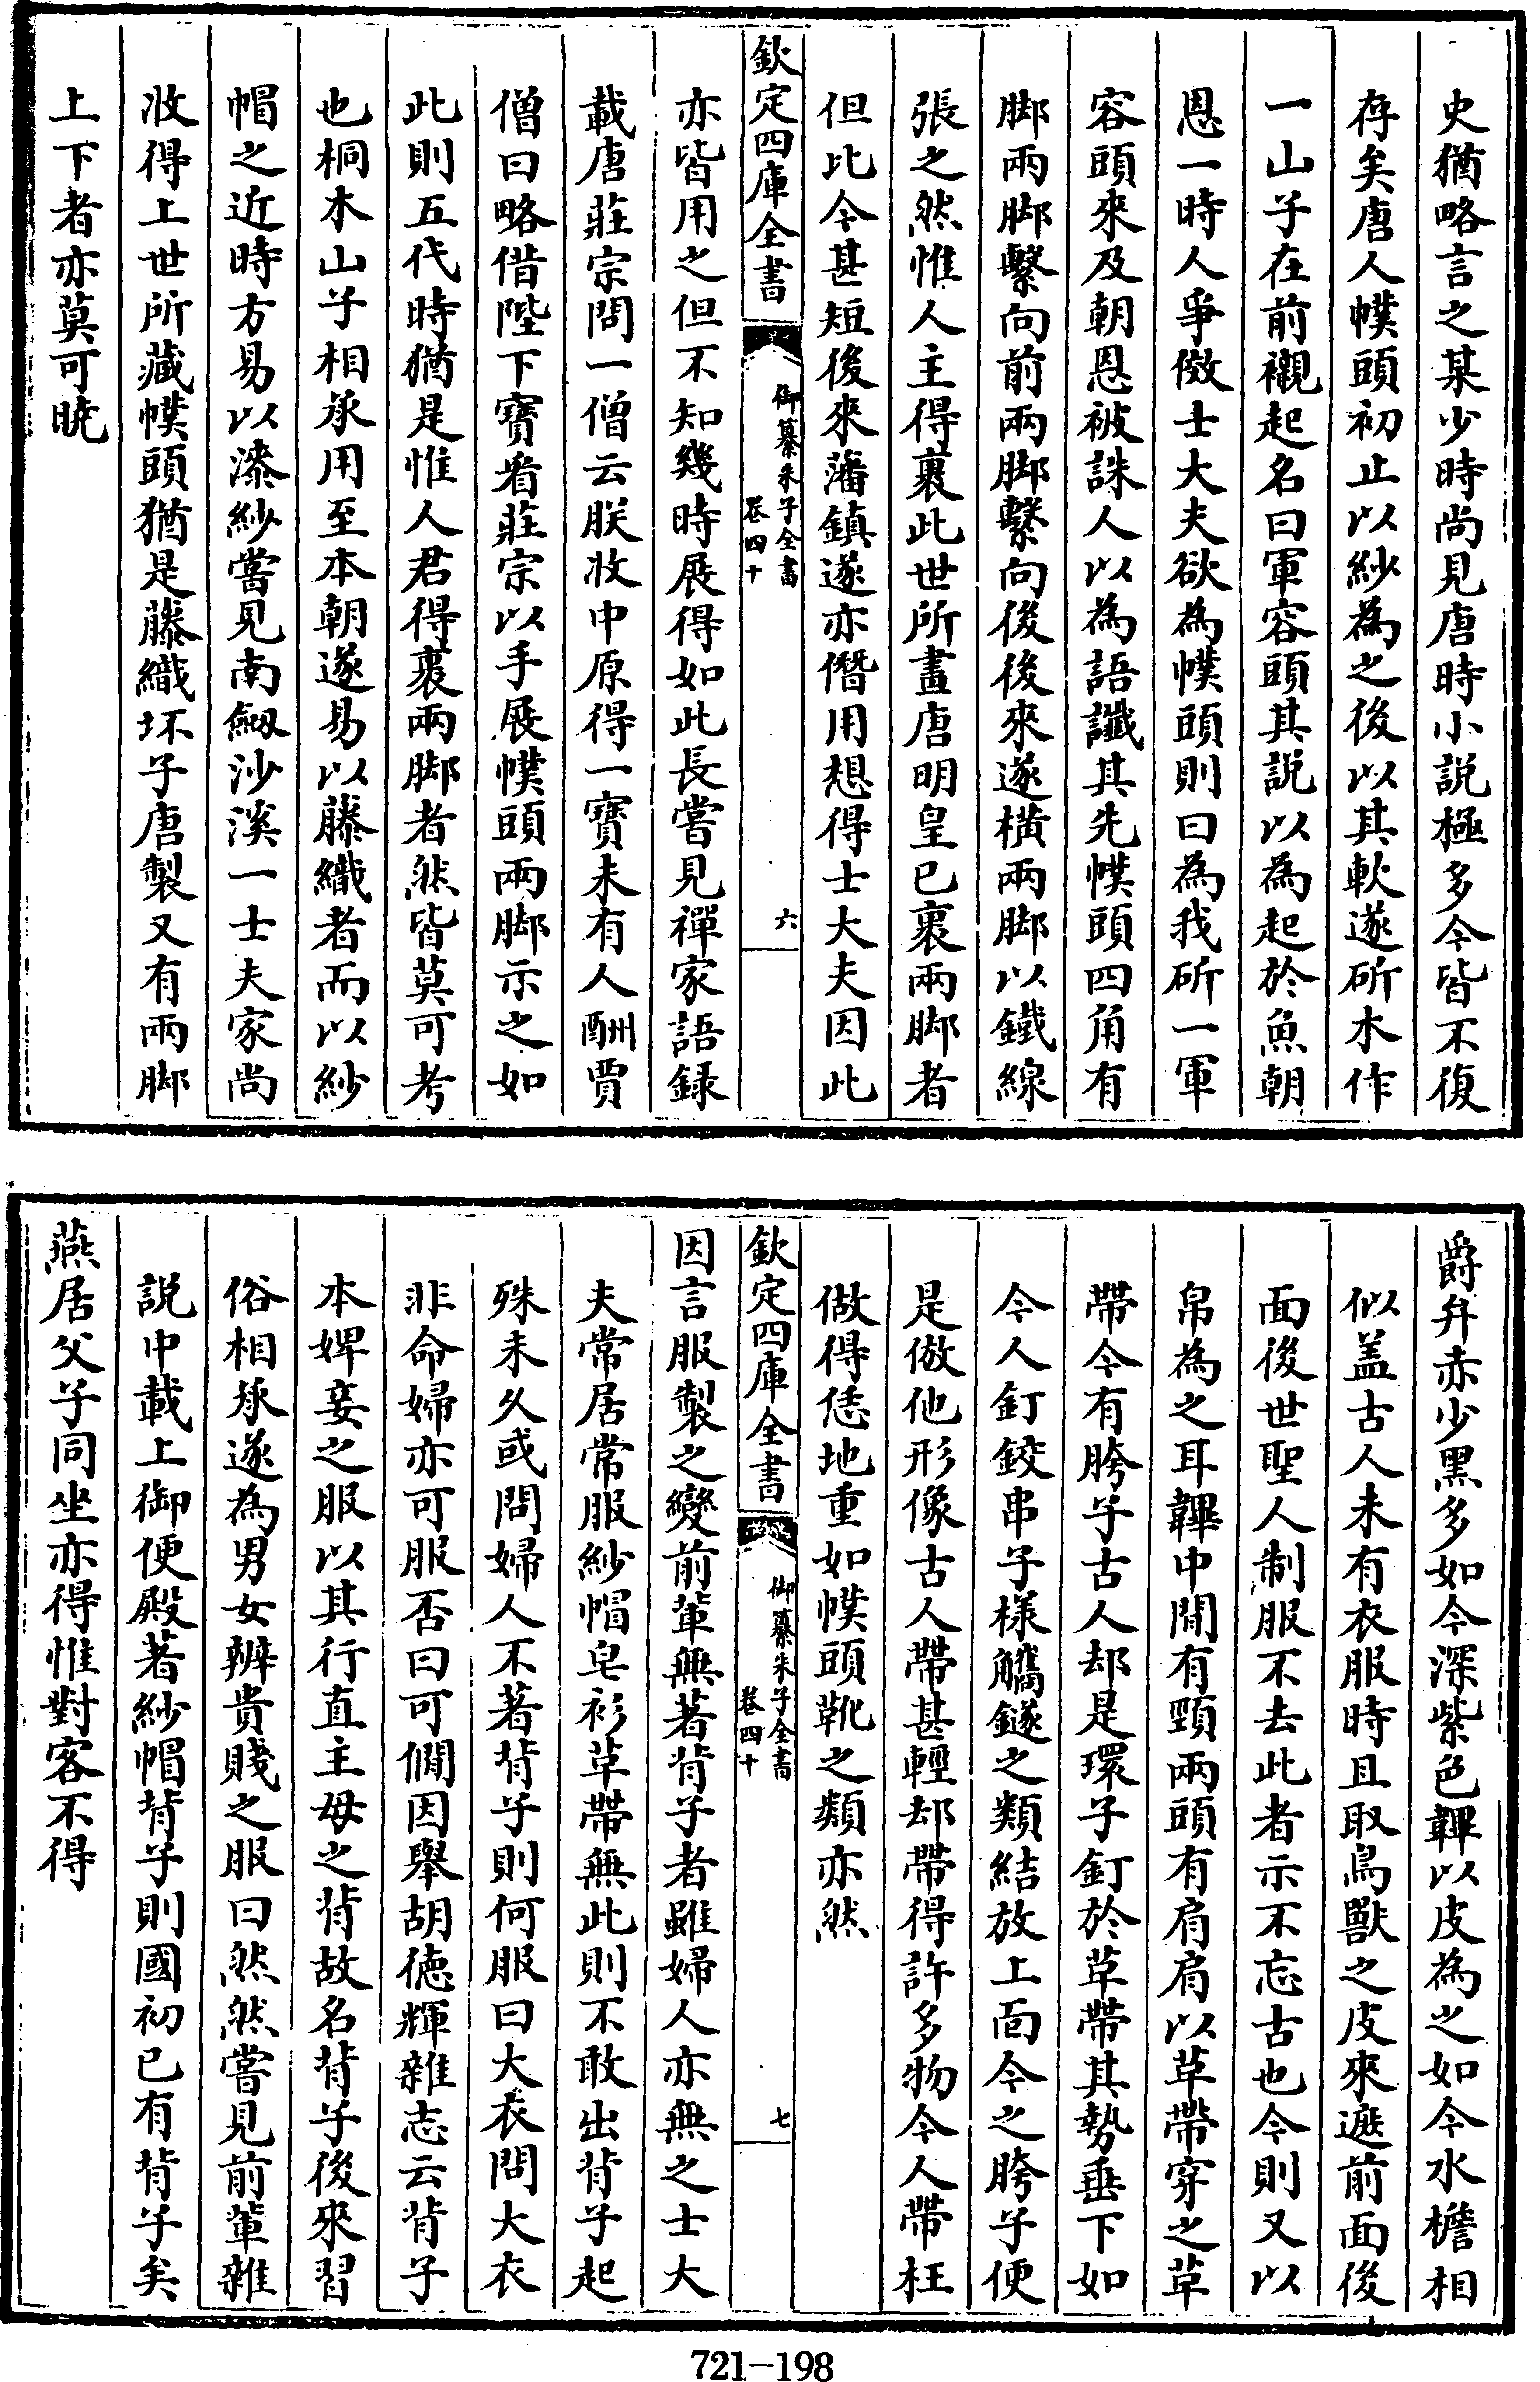 史猶略言之某少時尚見唐時小説極多今皆不復
存矣唐人幞頭初止以紗為之後以其軟遂斫木作
一山子在前襯起名曰軍容頭其説以為起於魚朝
恩一時人爭傚士大夫欲為幞頭則曰為我斫一軍
容頭來及朝恩被誅人以為語讖其先幞頭四角有
脚兩脚繫向前兩脚繫向後後來遂横兩脚以鐵線
張之然惟人主得裹此世所畫唐明皇已裹兩脚者
但比今甚短後來藩鎮遂亦僭用想得士大夫因此
欽定四庫全書
御纂朱子全書
卷四十
六
亦皆用之但不知幾時展得如此長嘗見禪家語録
載唐莊宗問一僧云朕收中原得一寶未有人酬賈
僧曰略借陛下寶看莊宗以手展幞頭兩脚示之如
此則五代時猶是惟人君得裹兩脚者然皆莫可考
也桐木山子相承用至本朝遂易以藤織者而以紗
帽之近時方易以漆紗嘗見南劔沙溪一士夫家尚
收得上世所藏幞頭猶是藤織坯子唐製又有兩脚
上下者亦莫可暁
爵弁赤少黒多如今深紫色韠以皮為之如今水檐相
似盖古人未有衣服時且取鳥獸之皮來遮前面後
面後世聖人制服不去此者示不忘古也今則又以
帛為之耳韠中間有頸兩頭有肩肩以革帶穿之革
帶今有胯子古人却是環子釘於革帶其勢垂下如
今人釘鉸串子様觿鐩之類結放上面今之胯子便
是倣他形像古人帶甚輕却帶得許多物今人帶枉
做得恁地重如幞頭靴之類亦然
欽定四庫全書
御纂朱子全書
卷四十
七
因言服製之變前輩無著背子者雖婦人亦無之士大
夫常居常服紗帽皂衫革帶無此則不敢出背子起
殊未久或問婦人不著背子則何服曰大衣問大衣
非命婦亦可服否曰可僩因舉胡徳輝雜志云背子
本婢妾之服以其行直主母之背故名背子後來習
俗相承遂為男女辨貴賤之服曰然然嘗見前輩雜
説中載上御便殿著紗帽背子則國初已有背子矣
燕居父子同坐亦得惟對客不得
721-198